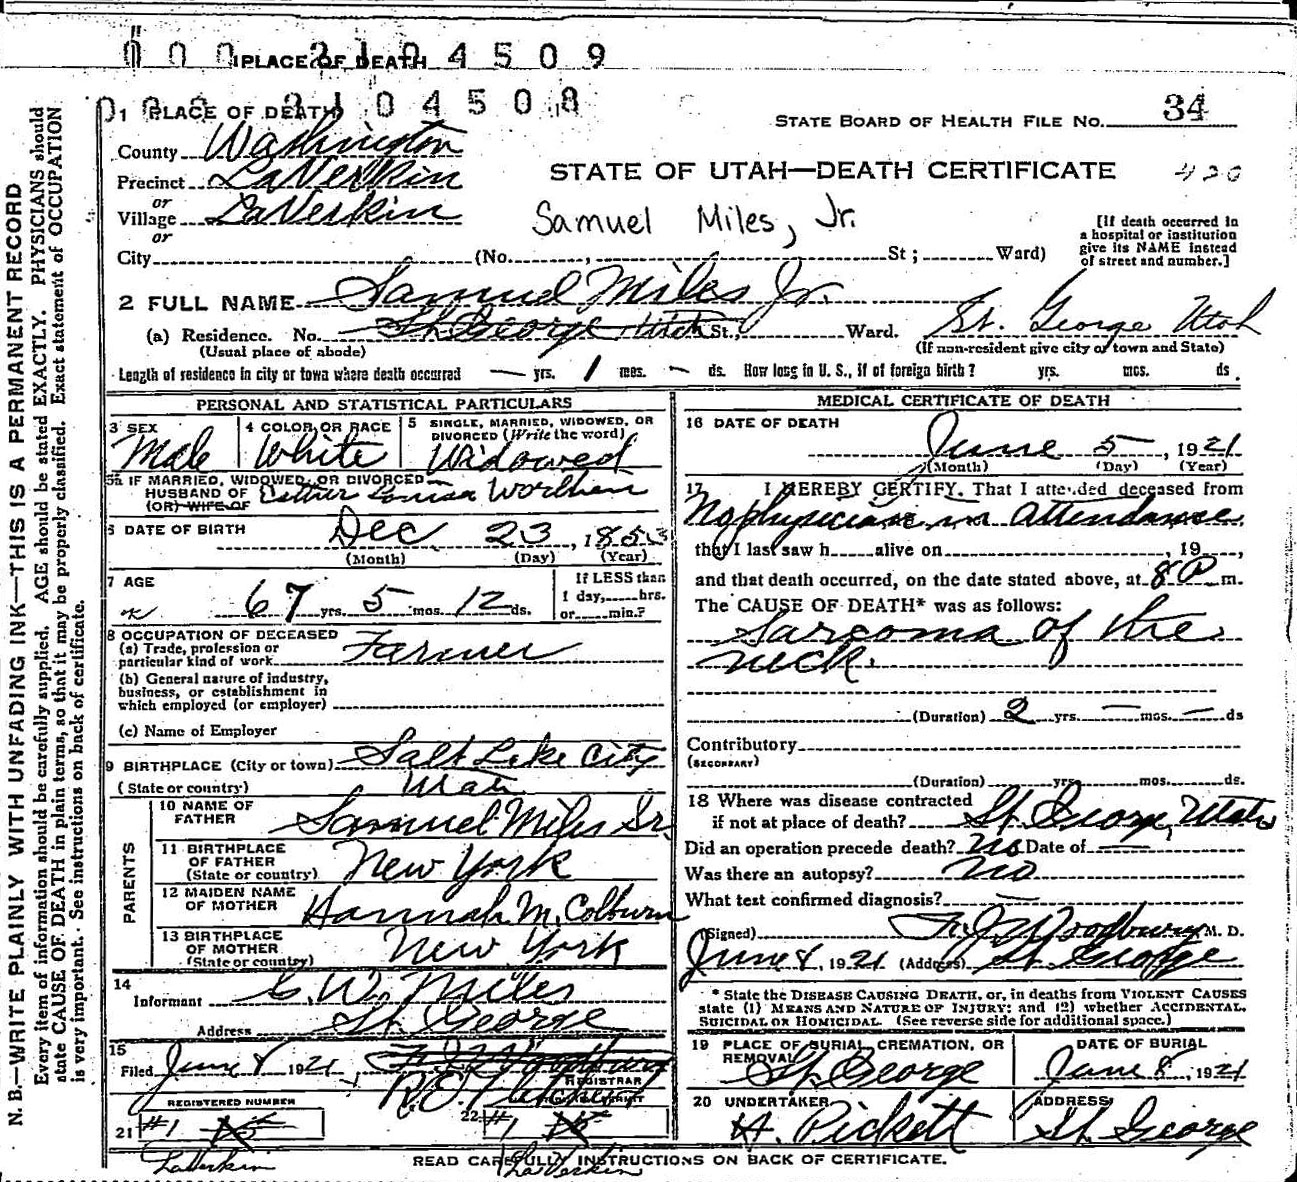 0 0 0 2 1 0 4 5 0 9
1 PLACE OF DEATH
0 0 0 2 1 0 4 5 0 8
1 PLACE OF DEATH
STATE BOARD OF HEALTH FILE NO. 34
County Washington
STATE OF UTAH—DEATH CERTIFICATE 420
Precinct LaVerkin
or
Village LaVerkin
or
Samuel Miles, Jr.
[If death occurred in
a hospital or institution
give its NAME instead
of street and number.]
City (No. , St; Ward)
2 FULL NAME Samuel Miles Jr.
(a) Residence. No. St. George Utah St., Ward. St. George Utah
(Usual place of abode) (If non-resident give city or town and State)
Length of residence in city or town where death occurred — yrs. 1 mos. — ds. How long in U. S., if of foreign birth? yrs. mos. ds.
PERSONAL AND STATISTICAL PARTICULARS
3 SEX
Male
4 COLOR OR RACE
White
5 SINGLE, MARRIED, WIDOWED, OR
DIVORCED (Write the word)
Widowed
5a IF MARRIED, WIDOWED, OR DIVORCED
HUSBAND OF Esther Louisa Worthen
(OR) WIFE OF
6 DATE OF BIRTH Dec 23, 1853
(Month) (Day) (Year)
7 AGE
67 yrs. 5 mos. 12 ds.
If LESS than
1 day, hrs.
or min.?
8 OCCUPATION OF DECEASED
(a) Trade, profession or
particular kind of work Farmer
(b) General nature of industry,
business, or establishment in
which employed (or employer)
(c) Name of Employer
9 BIRTHPLACE (City or town) Salt Lake City
(State or country) Utah
PARENTS
10 NAME OF
FATHER Samuel Miles Sr.
11 BIRTHPLACE
OF FATHER
(State or country) New York
12 MAIDEN NAME
OF MOTHER Hannah M. Colburn
13 BIRTHPLACE
OF MOTHER
(State or country) New York
14
Informant C. W. Miles
Address St. George
15
Filed June 8 1921 F. J. Woodbury
R. E. Fletcher
REGISTRAR
REGISTERED NUMBER
21 #1 15
LaVerkin
22 #1 15
LaVerkin
MEDICAL CERTIFICATE OF DEATH
16 DATE OF DEATH
June 5, 1921
(Month) (Day) (Year)
17 I HEREBY CERTIFY. That I attended deceased from
No physician in attendance
that I last saw h alive on , 19 ,
and that death occurred, on the date stated above, at 8 P m.
The CAUSE OF DEATH* was as follows:
Sarcoma of the
neck.
(Duration) 2 yrs. — mos. — ds
Contributory
(SECONDARY)
(Duration) yrs. mos. ds.
18 Where was disease contracted
if not at place of death? St. George, Utah
Did an operation precede death? No Date of —
Was there an autopsy? No
What test confirmed diagnosis? —
(Signed) F. J. Woodbury M. D.
June 8, 1921 (Address) St. George
* State the DISEASE CAUSING DEATH, or, in deaths from VIOLENT CAUSES
state (1) MEANS AND NATURE OF INJURY; and (2) whether ACCIDENTAL,
SUICIDAL OR HOMICIDAL. (See reverse side for additional space.)
19 PLACE OF BURIAL, CREMATION, OR
REMOVAL
St. George
DATE OF BURIAL
June 8, 1921
20 UNDERTAKER
H. Pickett
ADDRESS
St. George
READ CAREFULLY INSTRUCTIONS ON BACK OF CERTIFICATE.
N. B.—WRITE PLAINLY WITH UNFADING INK—THIS IS A PERMANENT RECORD
Every item of information should be carefully supplied. AGE should be stated EXACTLY. PHYSICIANS should
state CAUSE OF DEATH in plain terms, so that it may be properly classified. Exact statement of OCCUPATION
is very important. See instructions on back of certificate.